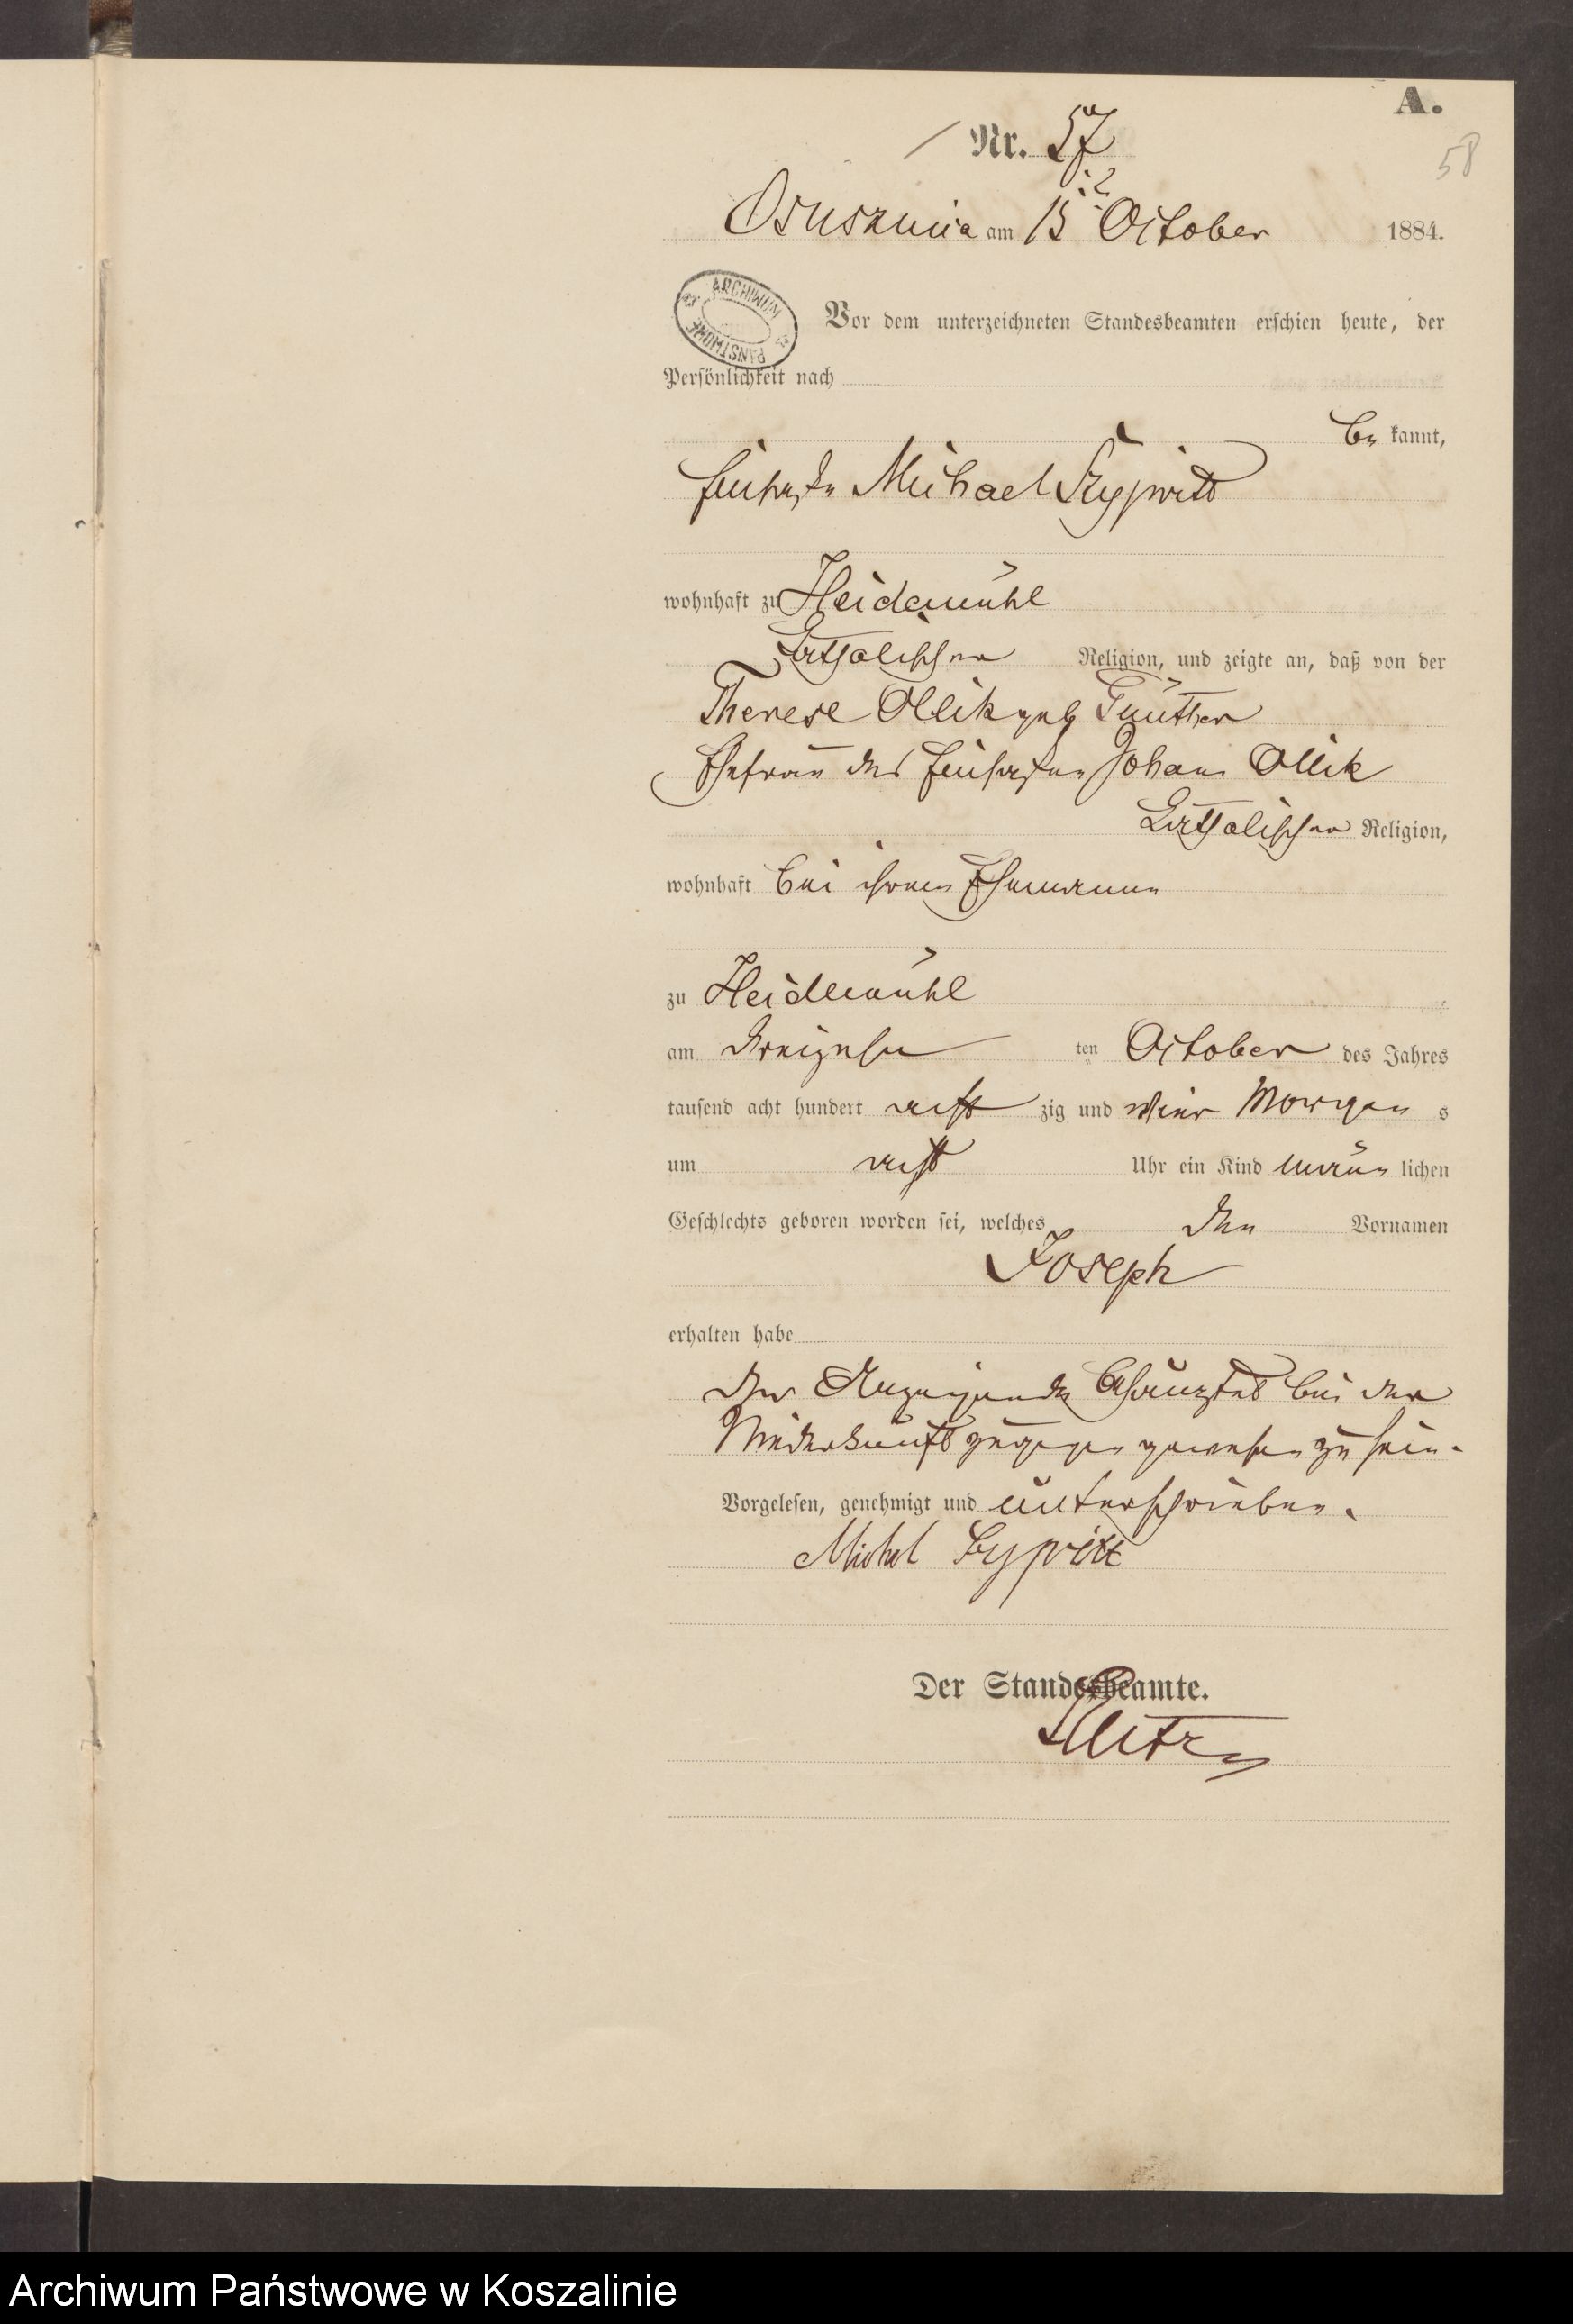 A.
Nr. 57
58
Osuszniza am 15 October 1884.
ARCHIWUM PAŃSTWOWE
Vor dem unterzeichneten Standesbeamten erschien heute, der
Persönlichkeit nach
be kannt,
Michael
wohnhaft zu Heidemühl
katholischer Religion, und zeigte an, daß von der
Therese Ollik geb Günther
Ehefrau des Johann Ollik
katholischer Religion,
wohnhaft bei ihrem Ehemanne
zu Heidemühl
am dreizehn ten October des Jahres
tausend acht hundert acht zig und vier Morgen s
um acht Uhr ein Kind männ lichen
Geschlechts geboren worden sei, welches den Vornamen
Joseph
erhalten habe
der Anzeigende bei der
Niederkunft zugegen gewesen zu sein.
Vorgelesen, genehmigt und unterschrieben.
Der Standesbeamte.
Archiwum Państwowe w Koszalinie